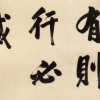 有則
行必